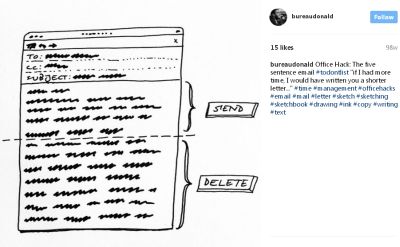 X
TO:
CC:
SUBJECT:
SEND
DELETE
bureaudonald
Follow
15 likes
98w
bureaudonald Office Hack: The five
sentence email #todontlist "if I had more
time, I would have written you a shorter
letter..." #time #management #officehacks
#email #mail #letter #sketch #sketching
#sketchbook #drawing #ink #copy #writing
#text